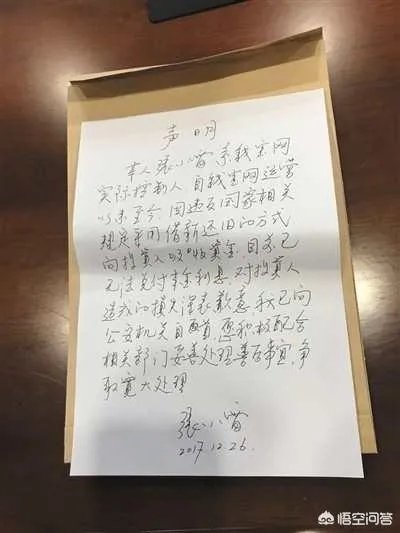 声明
本人张小雷系钱宝网
实际控制人 自钱宝网运营
以来至今，因违反国家相关
规定采用借新还旧的方式
向投资人吸收资金，目前已
无法兑付本金利息，对投资人
造成的损失深表歉意，我已向
公安机关自首，愿积极配合
相关部门妥善处理善后事宜，争
取宽大处理
张小雷
2017.12.26.
悟空问答